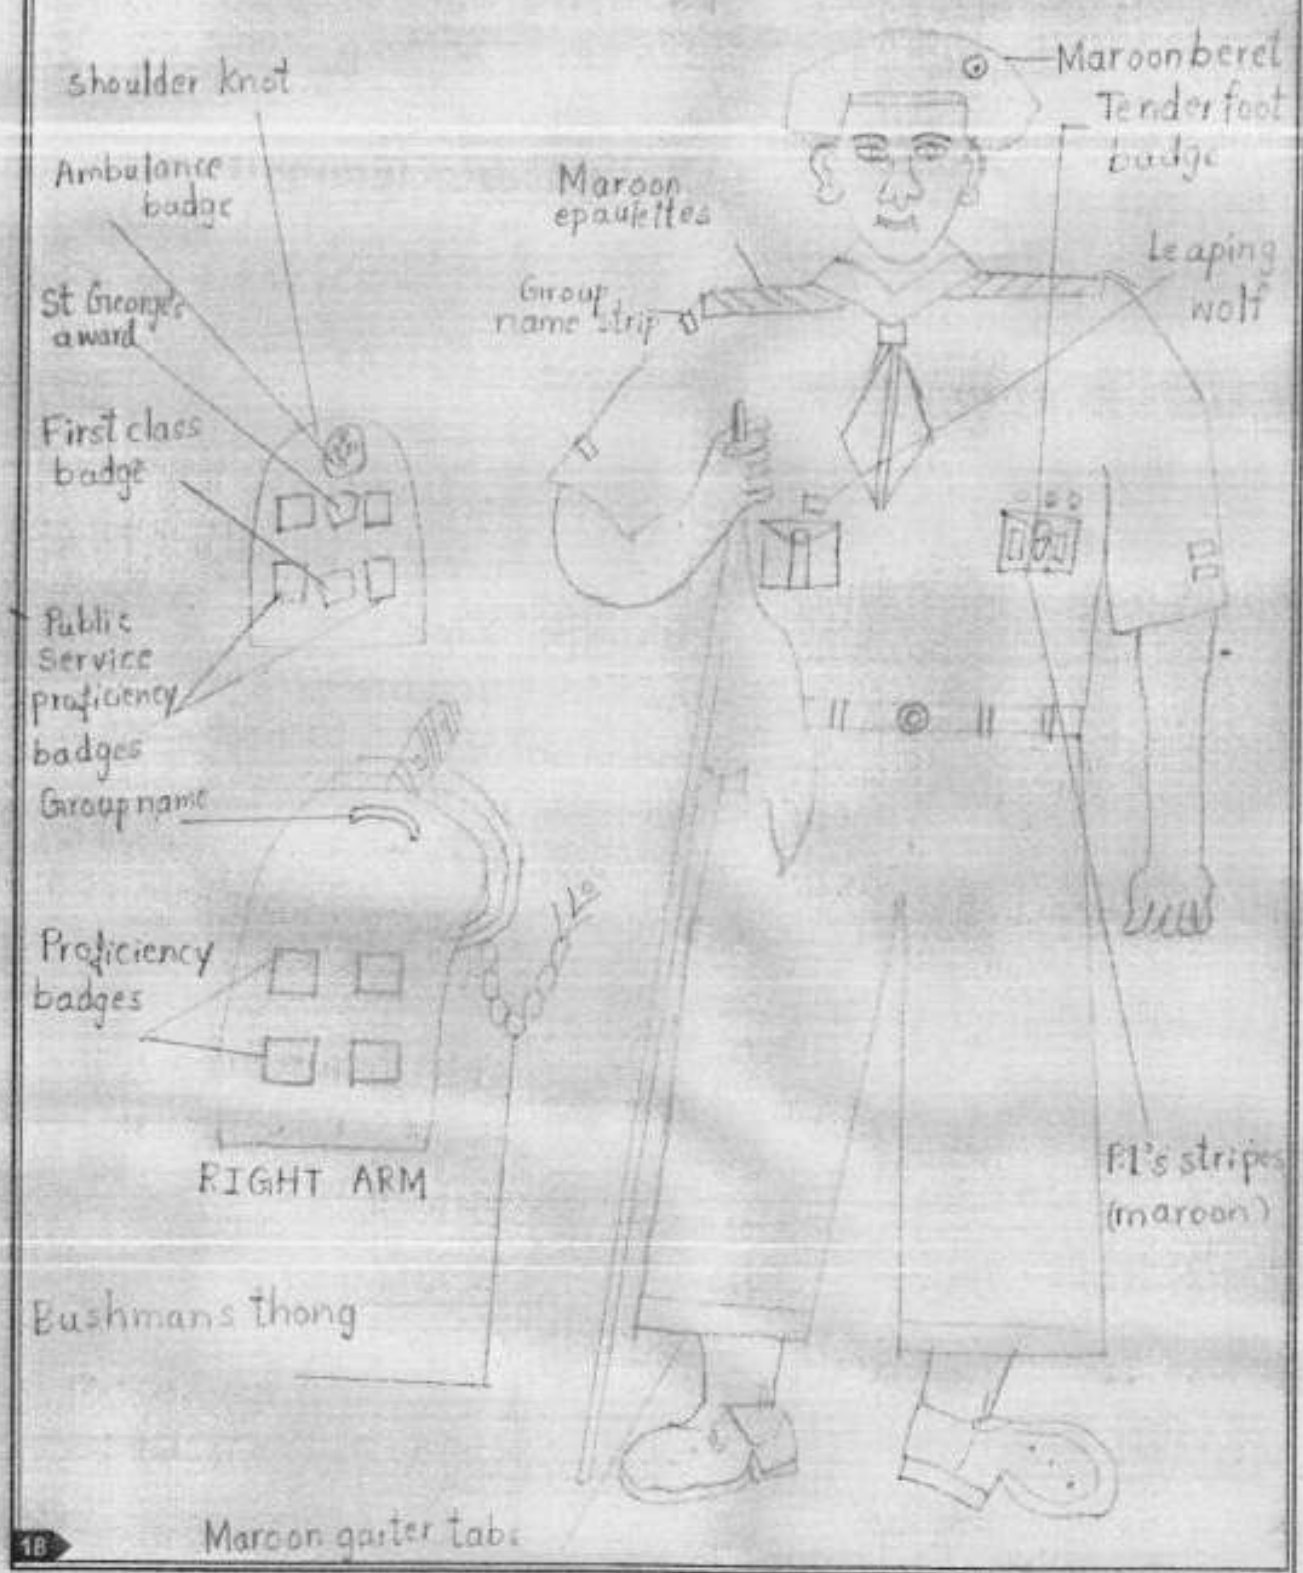 shoulder knot
Ambulance
badge
St George's
award
First class
badge
Public
service
proficiency
badges
Group name
Proficiency
badges
RIGHT ARM
Bushmans thong
Maroon garter tabs
Maroon
epaulettes
Group
name strip
Maroon beret
Tender foot
badge
Leaping
wolf
P.l's stripes
(maroon)
18